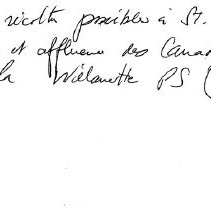 récolte possible à St.
et affluence des Canad
la Willamette PS (